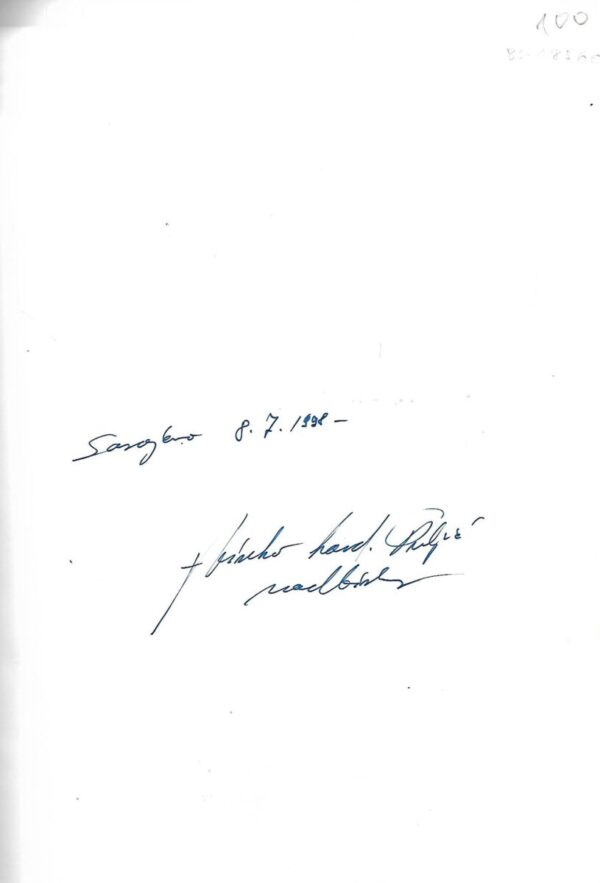 100
Sarajevo 8. 7. 1998 –
+ Vinko kard. Puljić
nadbiskup